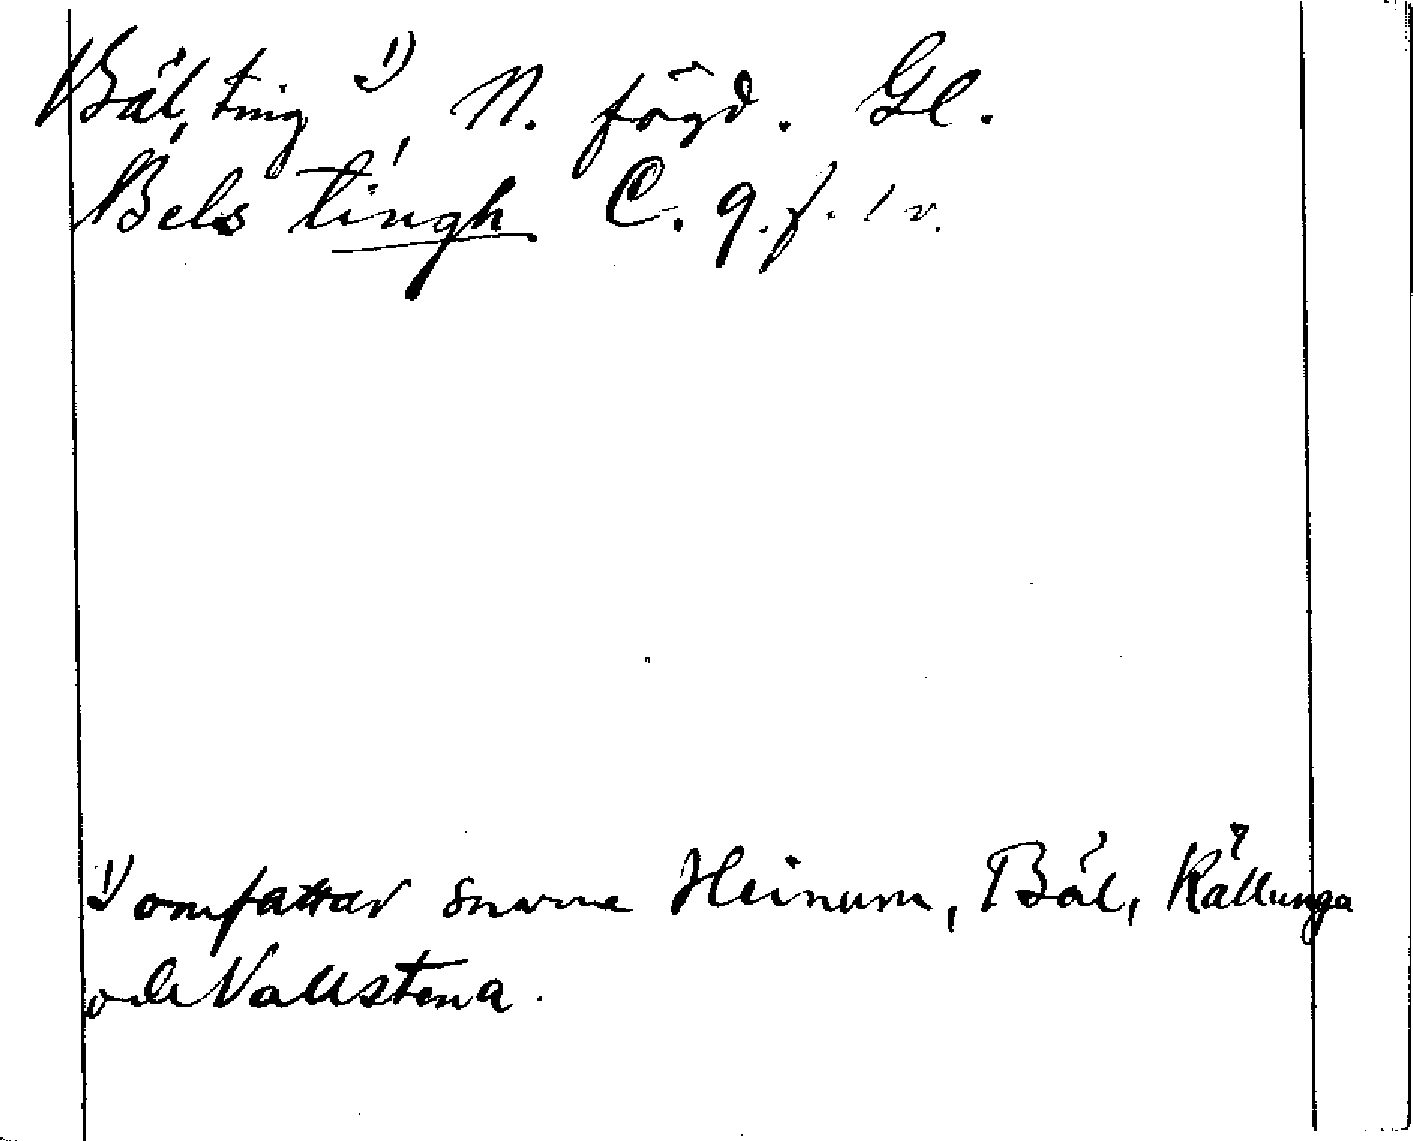 Bäl, ting 1), N. fögd. Gl.
Bels tingh C. 9. f. 1 v.
1) omfattar snarne Heinum, Bäl, Källunga
och Vallstena.